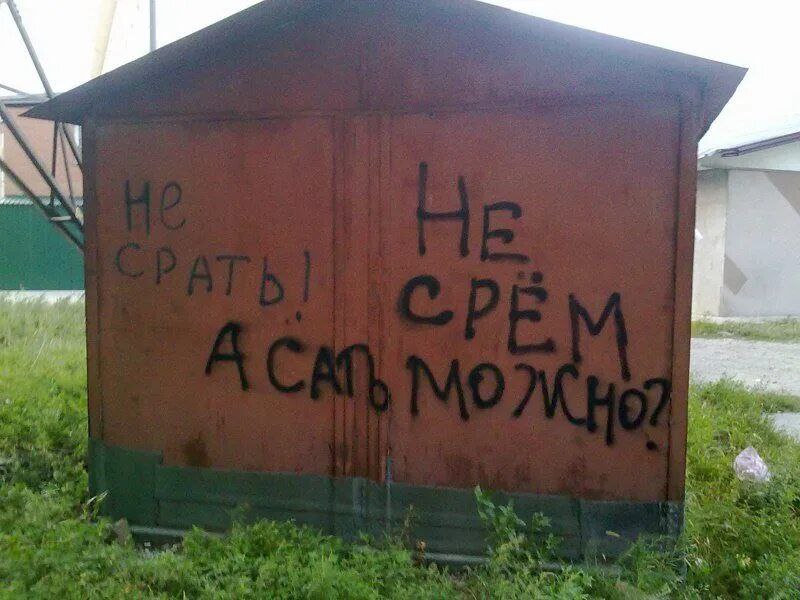 Не
срать!
НЕ
СРЁМ
А ССАТЬ МОЖНО?